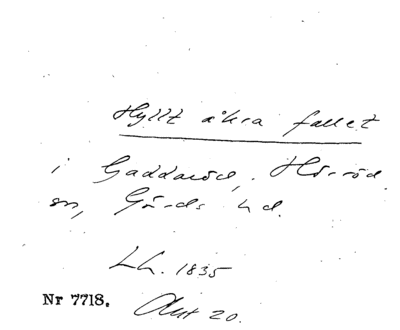 Hyllt åkra fallet
i Gaddaröd, Hörröd
sn, Gärds hd.
Lh. 1835
Nr 7718. Akt 20.